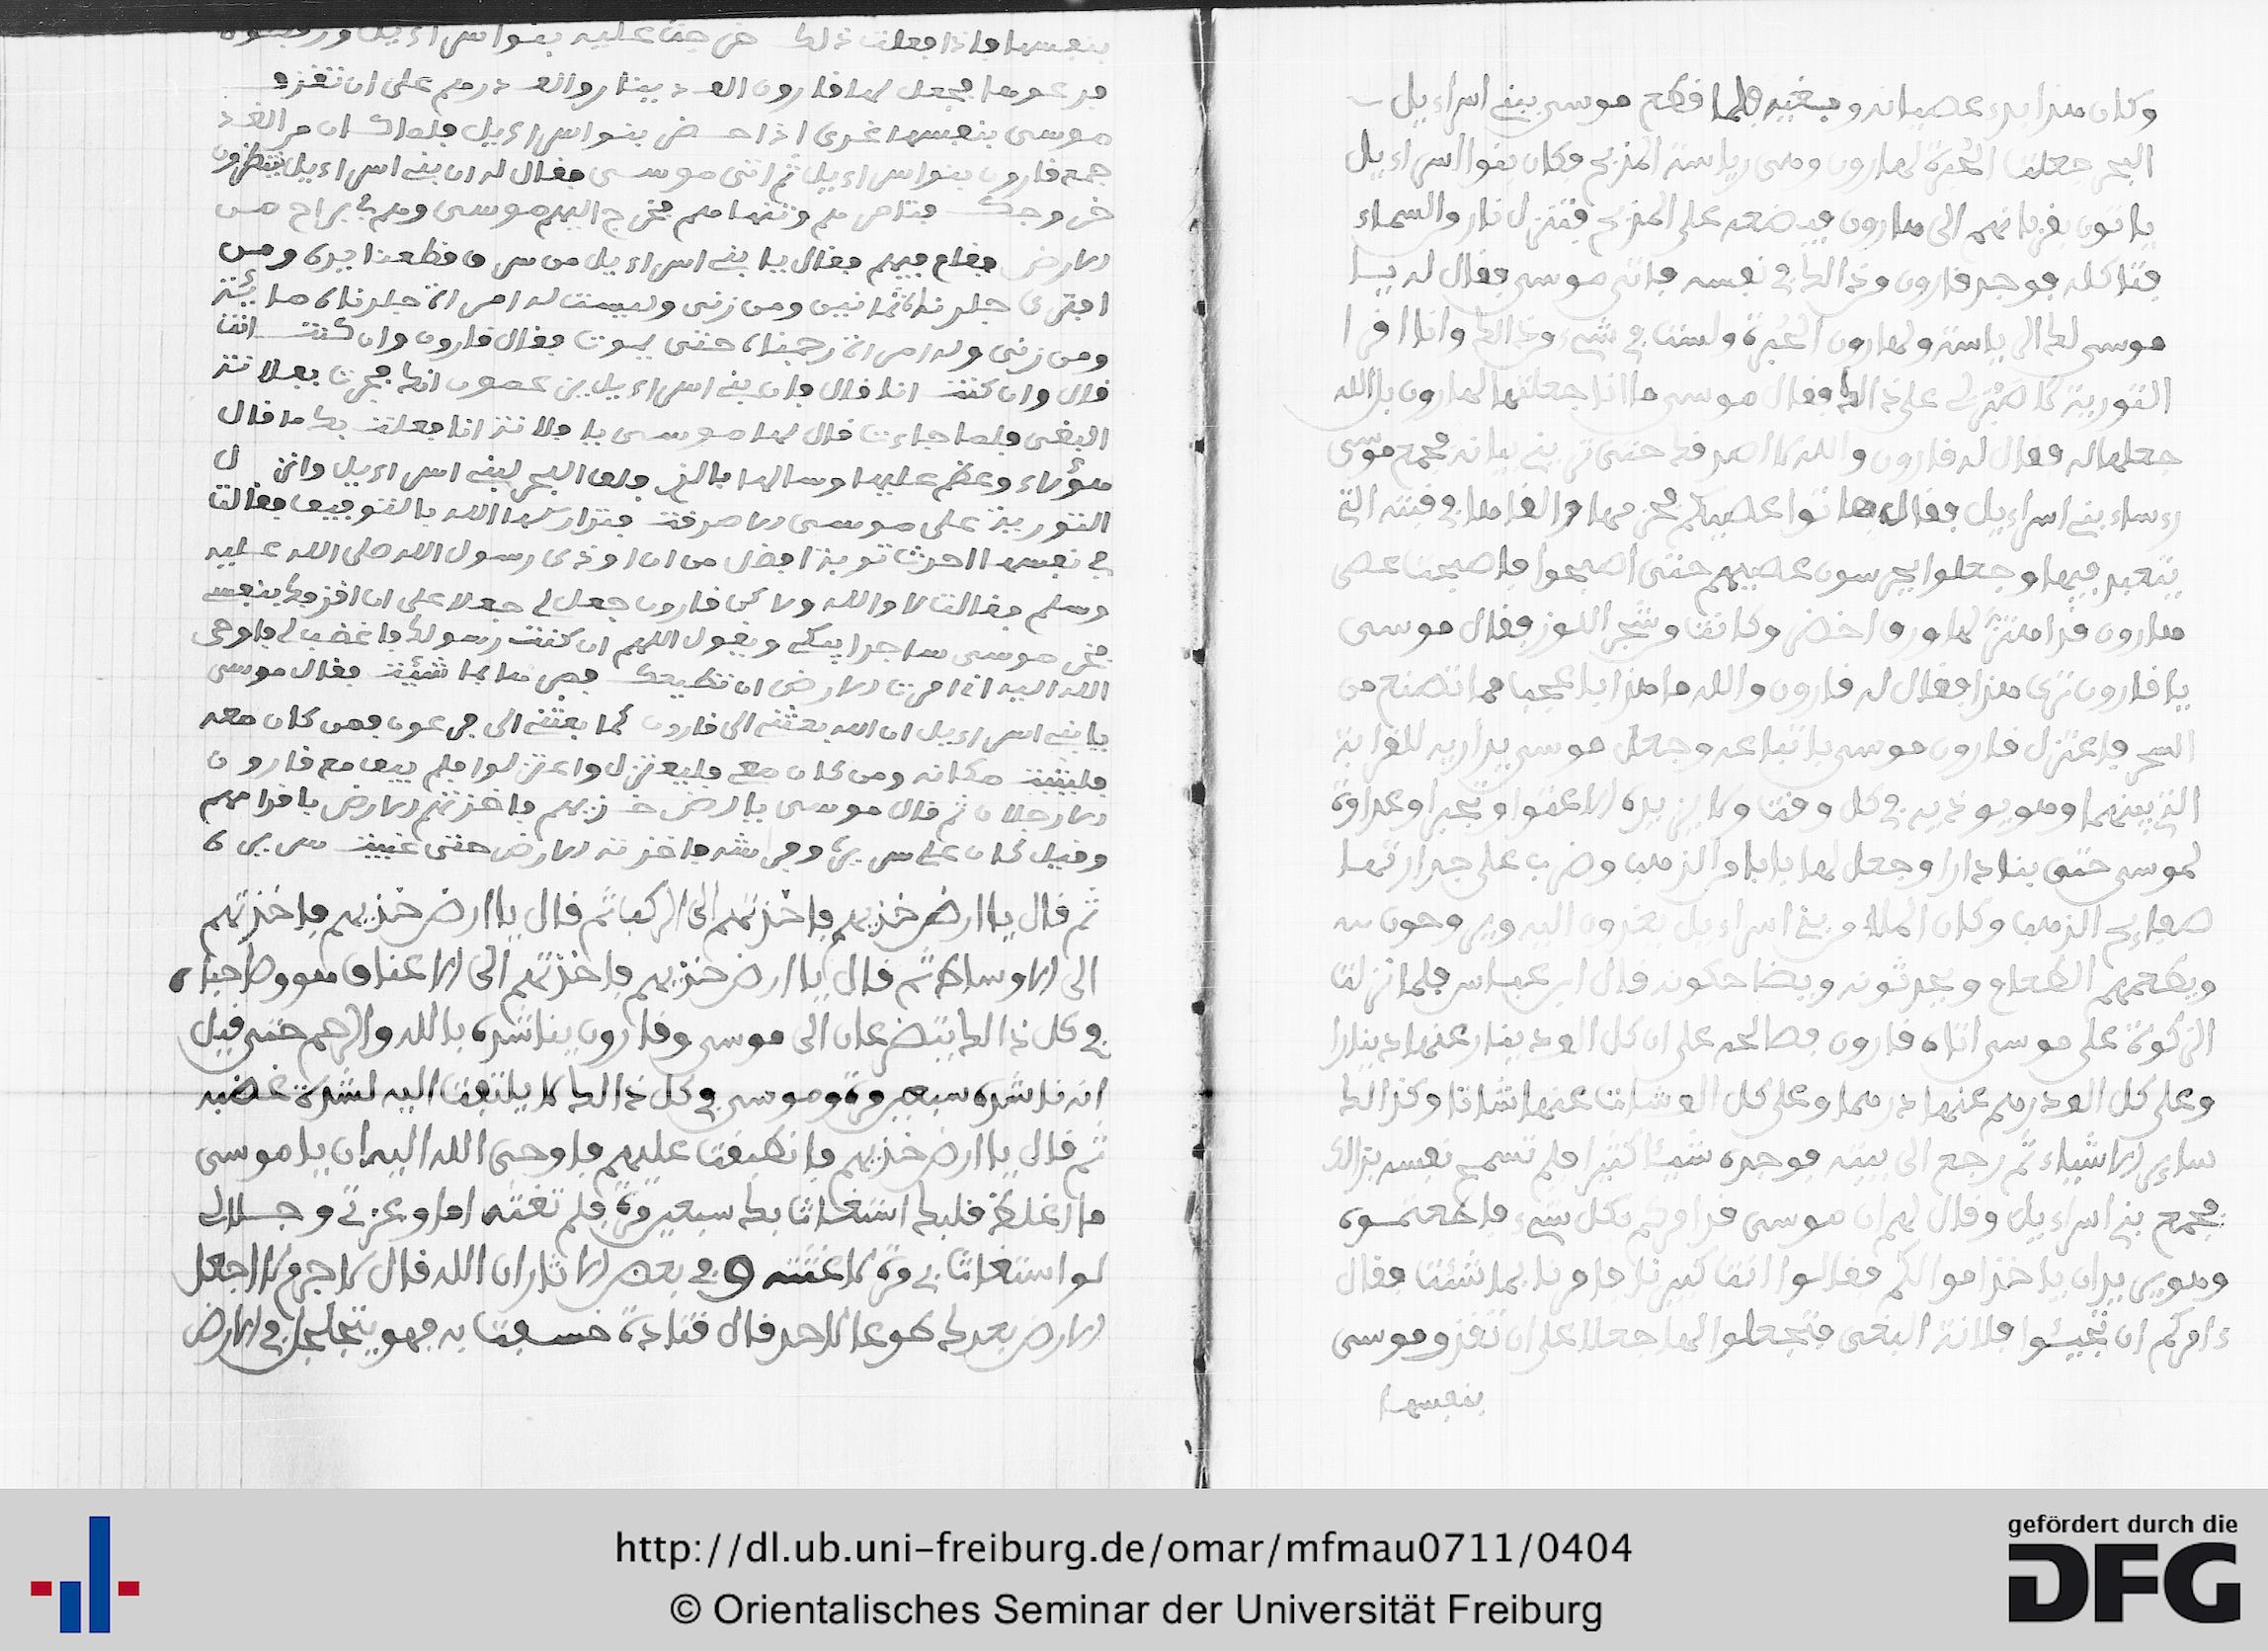 وكان هذا بدء عصيانه وبغيه فلما قطع موسى ببني اسراءيل
البحر جعلت الحبرة لهارون وهى رياسة المذبح وكان بنوا اسراءيل
ياتون بقربانهم الى هارون فيضعه على المذبح فتنزل نار من السماء
فتاكله فوجد قارون من ذالك في نفسه فاتى موسى فقال له يا
موسى لك الرياسة ولهارون الحبرة ولست في شيء من ذالك وانا اقرا
التورية لا صبر لي على ذالك فقال موسى ما انا جعلتها لهارون بل الله
جعلها له فقال له قارون والله لا اصدقك حتى تريني بيانه فجمع موسى
رءساء بني اسراءيل فقال هاتوا عصيكم فحزمها والقاها في قبته التي
يتعبد فيها وجعلوا يحرسون عصيهم حتى اصبحوا فاصبحت عصى
هارون قد اهتز لها ورق اخضر وكانت من شجر اللوز فقال موسى
يا قارون ترى هذا فقال له قارون والله ما هذا باعجب مما تصنع من
السحر فاعتزل قارون موسى باتباعه وجعل موسى يداريه للقرابة
التي بينهما وهو يوذيه في كل وقت ولا يزيده الا عتوا وتجبرا وعداوة
لموسى حتى بنا دارا وجعل لها بابا من الذهب وضرب على جدارتها
صفايح الذهب وكان الملا من بني اسراءيل يغدون اليه ويروحون
ويطعمهم الطعام ويحدثونه ويضاحكونه قال ابن عباس فلما نزلت
الزكوة على موسى اتاه قارون فصالحه على ان كل الف دينار عنها دينارا
وعلى كل الف درهم عنها درهما وعلى كل الف شات عنها شاتا وكذالك
ساير الاشياء ثم رجع الى بيته فوجده شيئا كثيرا فلم تسمح نفسه بذالك
فجمع بني اسراءيل وقال لهم ان موسى قد امركم بكل شيء فاطعتموه
وهو يريد ان ياخذ اموالكم فقالوا انت كبيرنا فامرنا بما شئت فقال
ءامركم ان تجيئوا فلانة البغى فتجعلوا لها جعلا على ان تقذف موسى
بنفسها
بنفسها فاذا فعلت ذلك خرجت عليه بنوا اسراءيل ورفضوه
فدعوها فجعل لها قارون الف دينار والف درهم على ان تقذف
موسى بنفسها غدى اذا حضر بنوا اسراءيل فلما كان من الغد
جمع قارون بنوا اسراءيل ثم اتى موسى فقال له ان بني اسراءيل ينتظرون
خروجك فتامرهم وتنهاهم فخرج اليهم موسى وهم في براح من
الارض فقام فيهم فقال يا بني اسراءيل من سرق قطعنا يده ومن
افترى جلدناه ثمانين ومن زنى وليست له امراة جلدناه مايتة
ومن زنى وله امراة رجمناه حتى يموت فقال قارون وان كنت انت
قال وان كنت انا قال فان بني اسراءيل يزعمون انك فجرت بفلانة
البغى فلما جاءت قال لها موسى يا فلانة انا فعلت بك ما قال
هؤلاء وعظم عليها وسالها بالذي فلق البحر لبني اسراءيل وانزل
التورية على موسى الا صدقت فتداركها الله بالتوفيق فقالت
في نفسها احدث توبة افضل من ان اوذى رسول الله صلى الله عليه
وسلم فقالت لا والله ولاكن قارون جعل لي جعلا على ان اقذفك بنفسي
فخر موسى ساجدا يبكي ويقول اللهم ان كنت رسولك فاغضب لي فاوحى
الله اليه اني امرت الارض ان تطيعك فمرها بما شئت فقال موسى
يا بني اسراءيل ان الله بعثني الى قارون كما بعثني الى فرعون فمن كان معه
فليثبت مكانه ومن كان معي فليعتزل واعتزلوا فلم يبق مع قارون
الا رجلان ثم قال موسى يا ارض خذيهم فاخذتهم الارض باقدامهم
وقيل كان على سريره وفراشه فاخذته الارض حتى غيبت سريره
ثم قال يا ارض خذيهم فاخذتهم الى الركب ثم قال يا ارض خذيهم فاخذتهم
الى الاوساط ثم قال يا ارض خذيهم فاخذتهم الى الاعناق هو وصاحباه
في كل ذالك يتضرعان الى موسى وقارون يناشده بالله والرحم حتى قيل
انه ناشده سبعين مرة وموسى في كل ذالك لا يلتفت اليه لشدة غضبه
ثم قال يا ارض خذيهم فانطبقت عليهم فاوحى الله اليه ان يا موسى
ما اغلظ قلبك استغاثا بك سبعين مرة فلم تغثه اما وعزتي وجلالي
لو استغاثا بي مرة لاغثته وفي بعض الاثار ان الله قال لا جرم لا اجعل
الارض بعدك طوعا لاحد قال قتادة خسفت به فهو يتجلجل في الارض
http://dl.ub.uni-freiburg.de/omar/mfmau0711/0404
© Orientalisches Seminar der Universität Freiburg
gefördert durch die
DFG